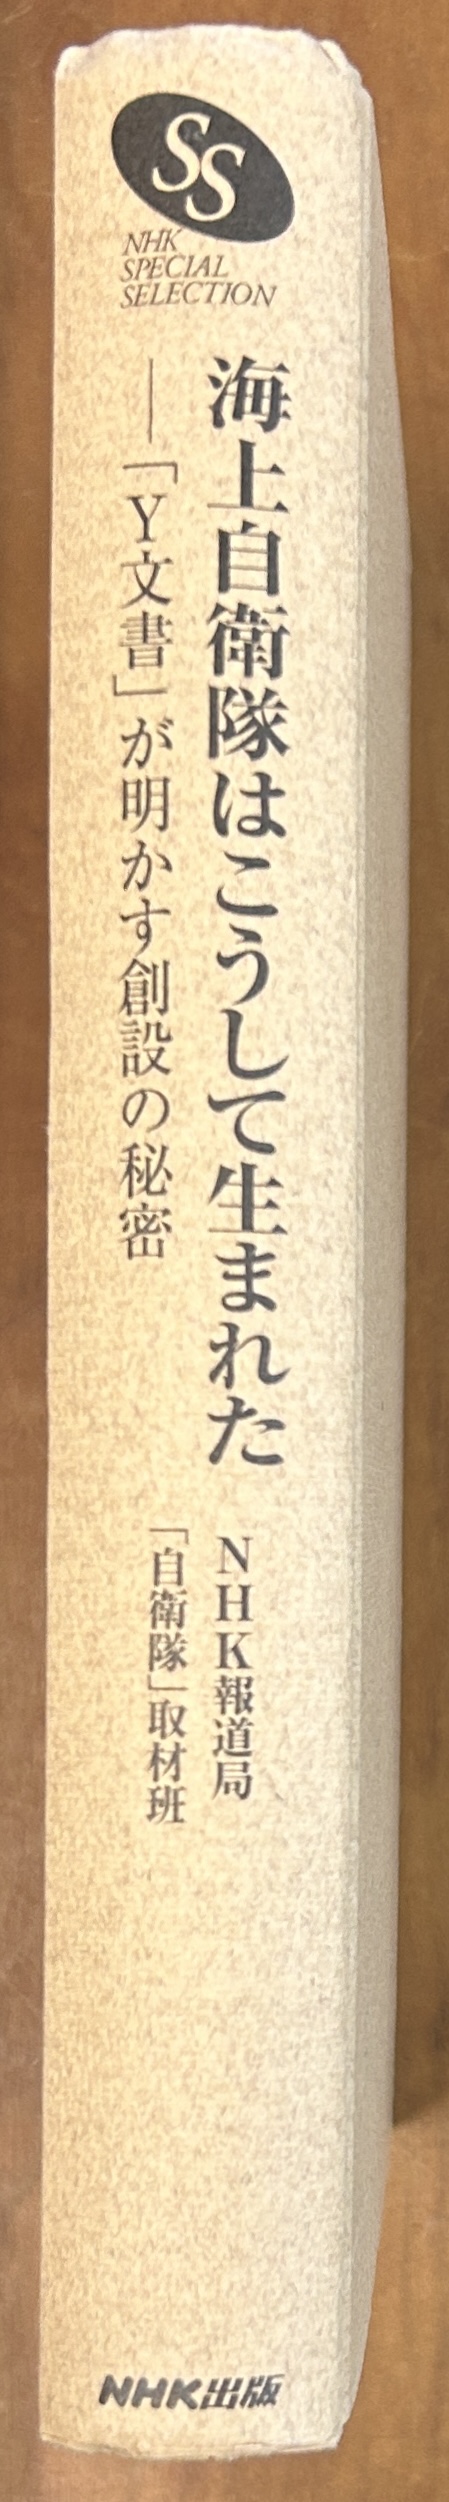 SS
NHK
SPECIAL
SELECTION
海上自衛隊はこうして生まれた
―「Y文書」が明かす創設の秘密
NHK報道局
「自衛隊」取材班
NHK出版